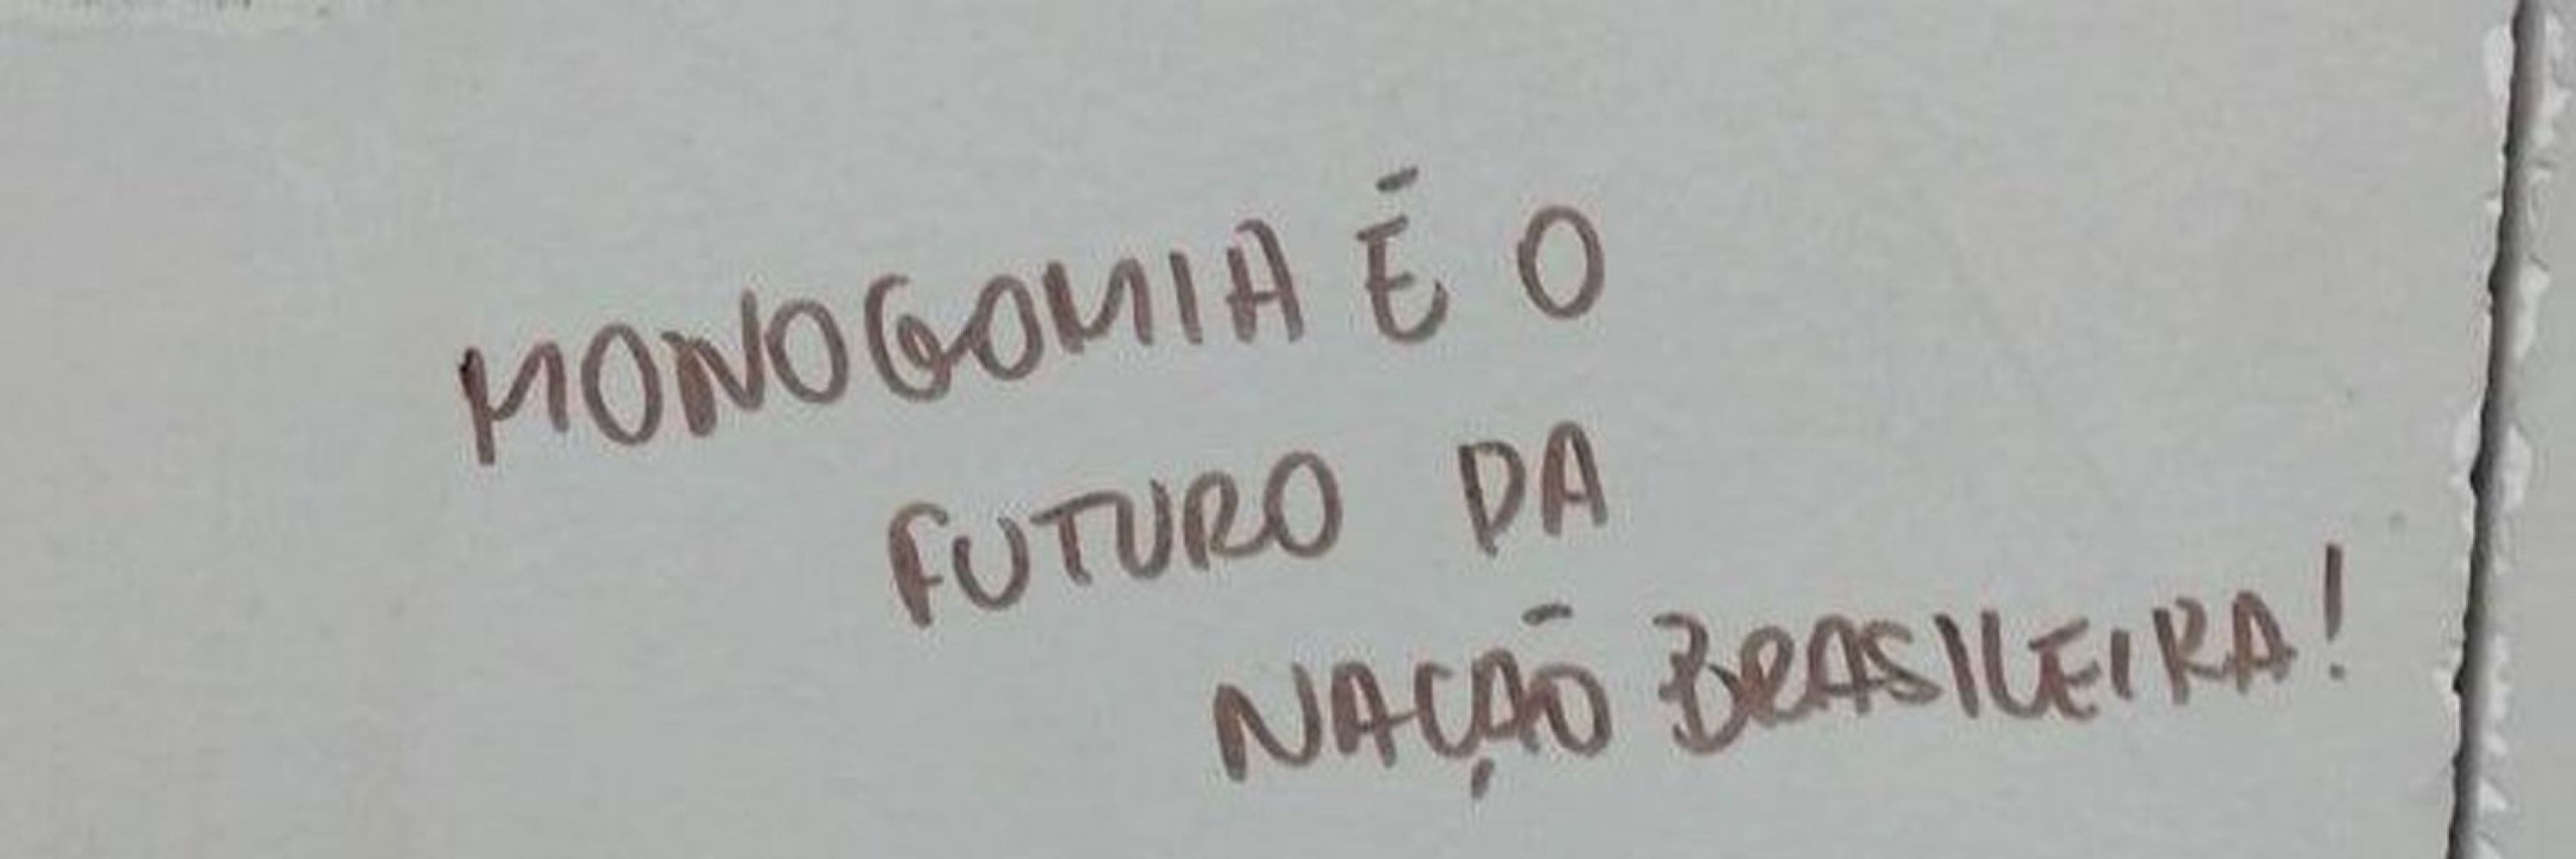 MONOGOMIA É O
FUTURO DA
NAÇÃO BRASILEIRA!